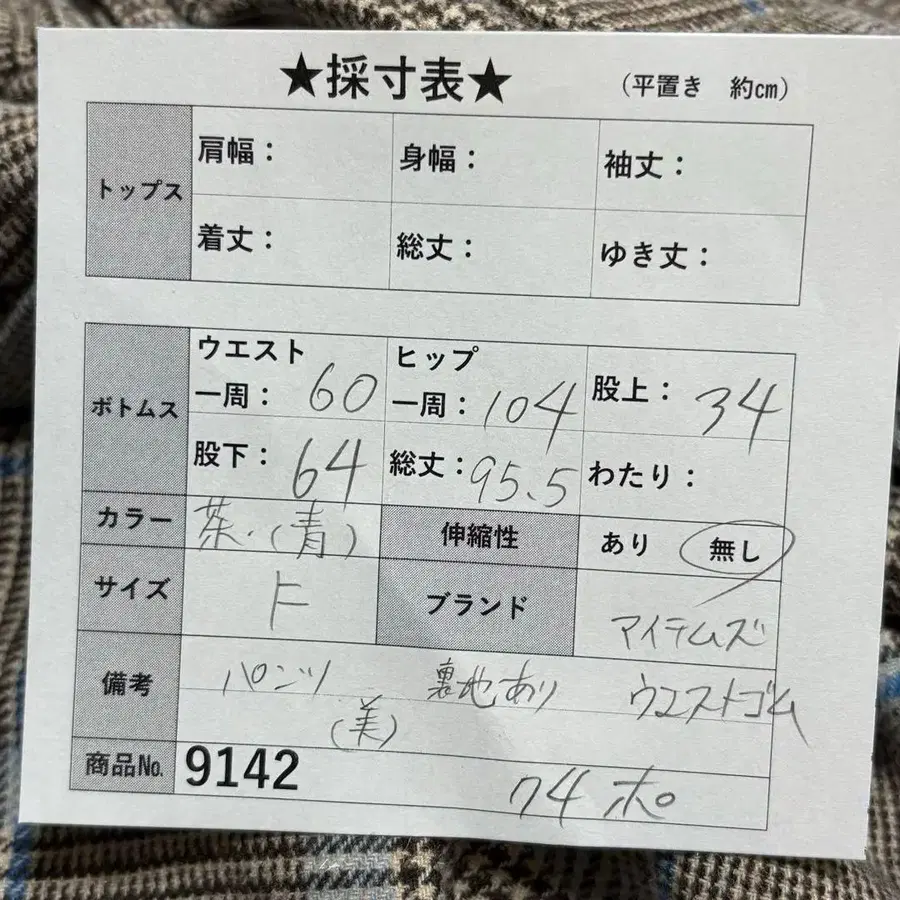 ★採寸表★ （平置き 約㎝）
トップス
肩幅： 身幅： 袖丈：
着丈： 総丈： ゆき丈：
ボトムス
ウエスト一周：60 ヒップ一周：104 股上：34
股下：64 総丈：95.5 わたり：
カラー 茶.（青） 伸縮性 あり 無し
サイズ F ブランド アイテムズ
備考 パンツ 裏地あり ウエストゴム
(美)
商品No. 9142 74 ポ